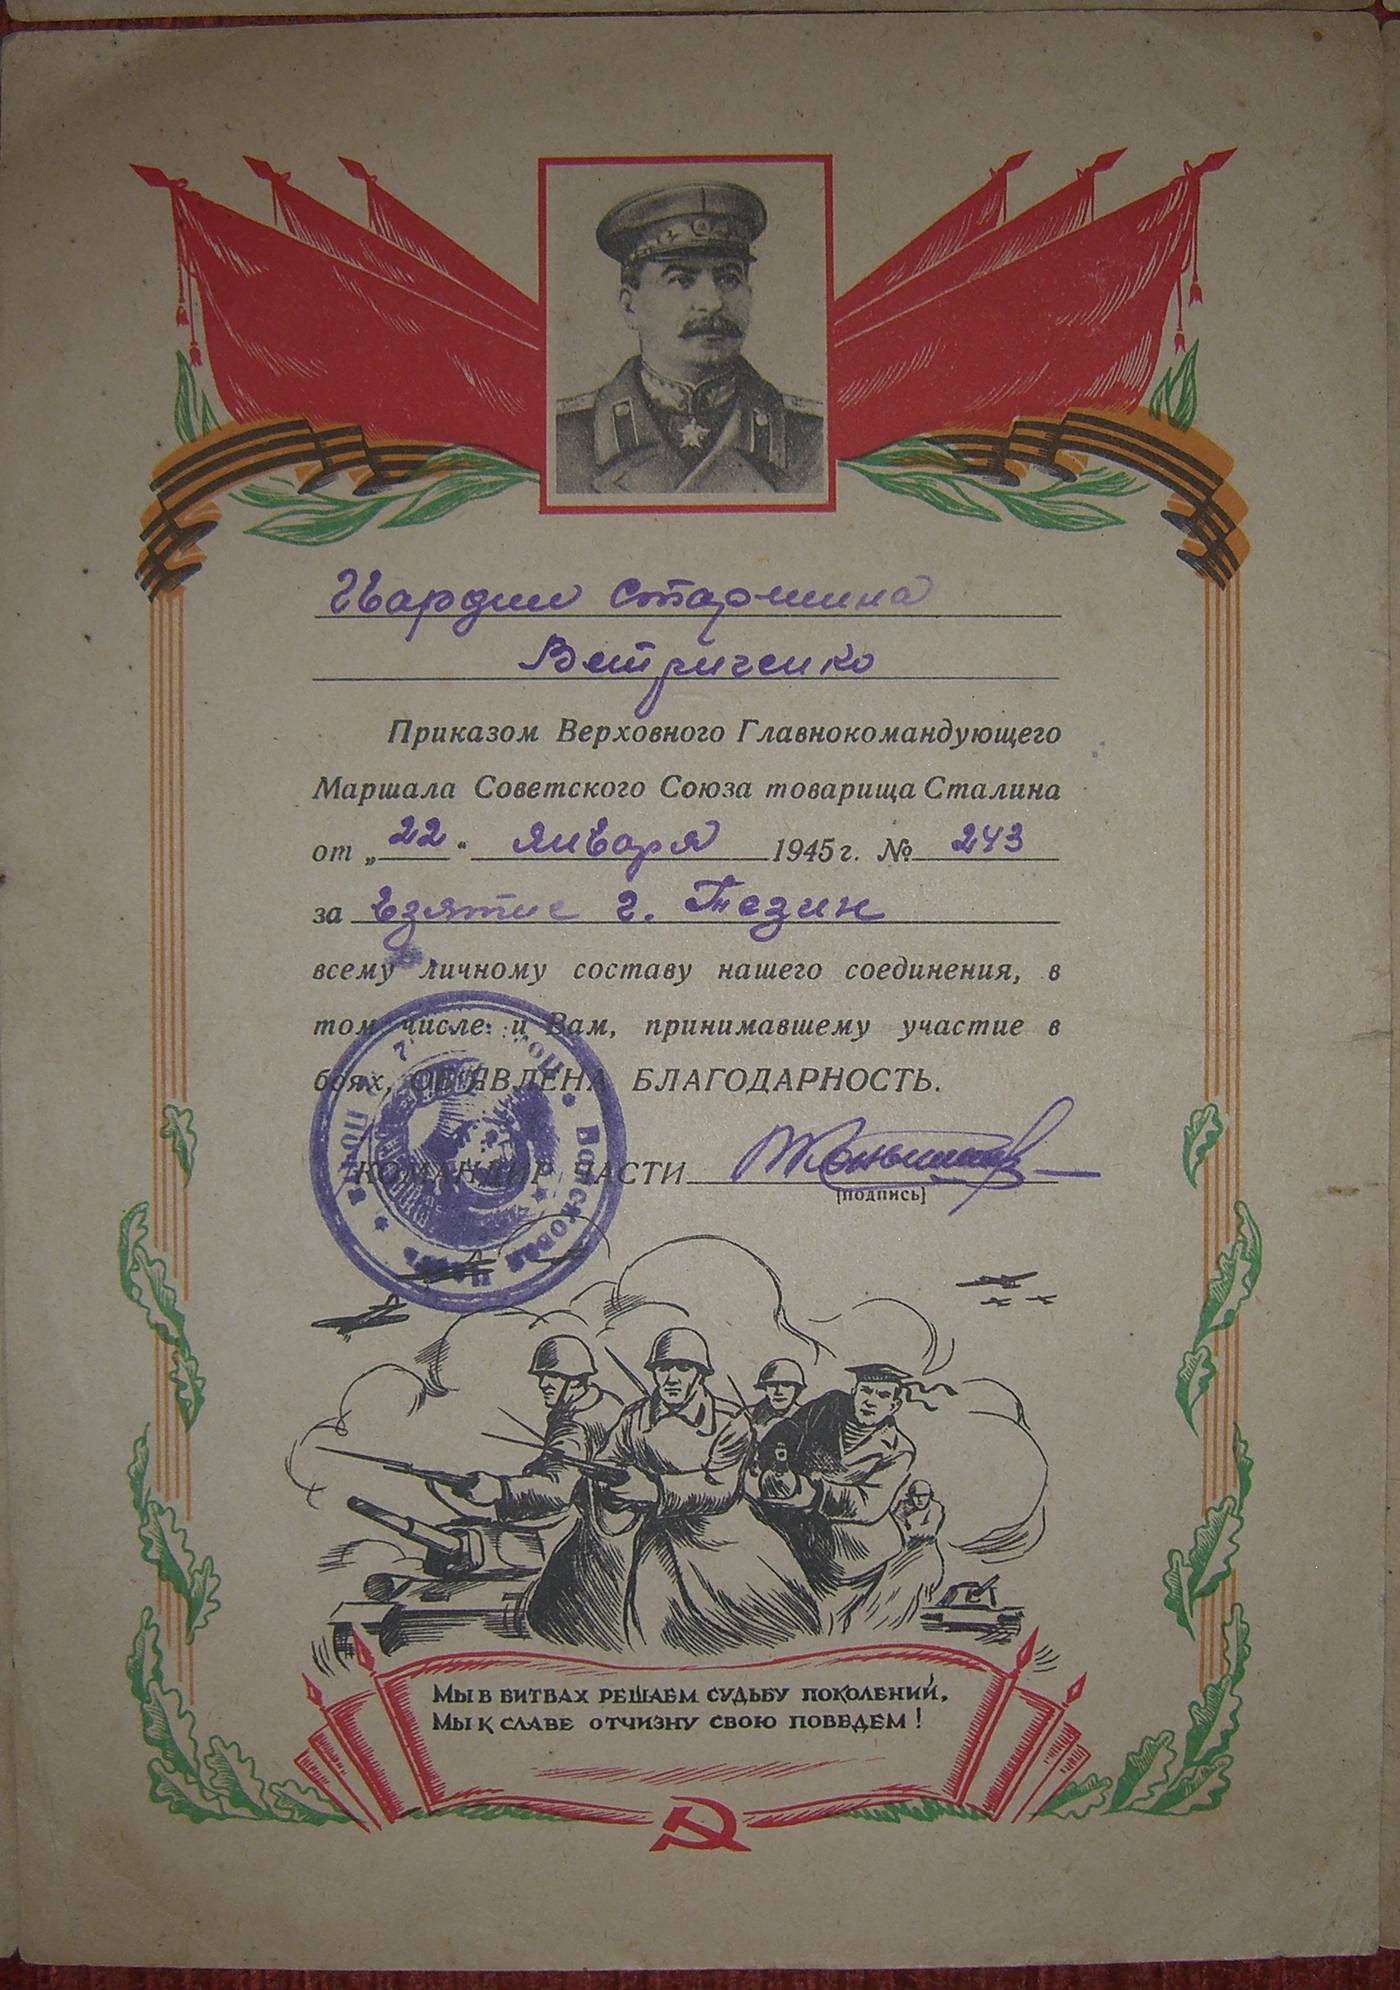 Гвардии старшина
Ветриченко
Приказом Верховного Главнокомандующего
Маршала Советского Союза товарища Сталина
от „22“ января 1945 г. № 243
за взятие г. Тезин
всему личному составу нашего соединения, в
том числе и Вам, принимавшему участие в
боях, ОБ'ЯВЛЕНА БЛАГОДАРНОСТЬ.
КОМАНДИР ЧАСТИ
(подпись)
Войсковая часть
МЫ В БИТВАХ РЕШАЕМ СУДЬБУ ПОКОЛЕНИЙ,
МЫ К СЛАВЕ ОТЧИЗНУ СВОЮ ПОВЕДЕМ!